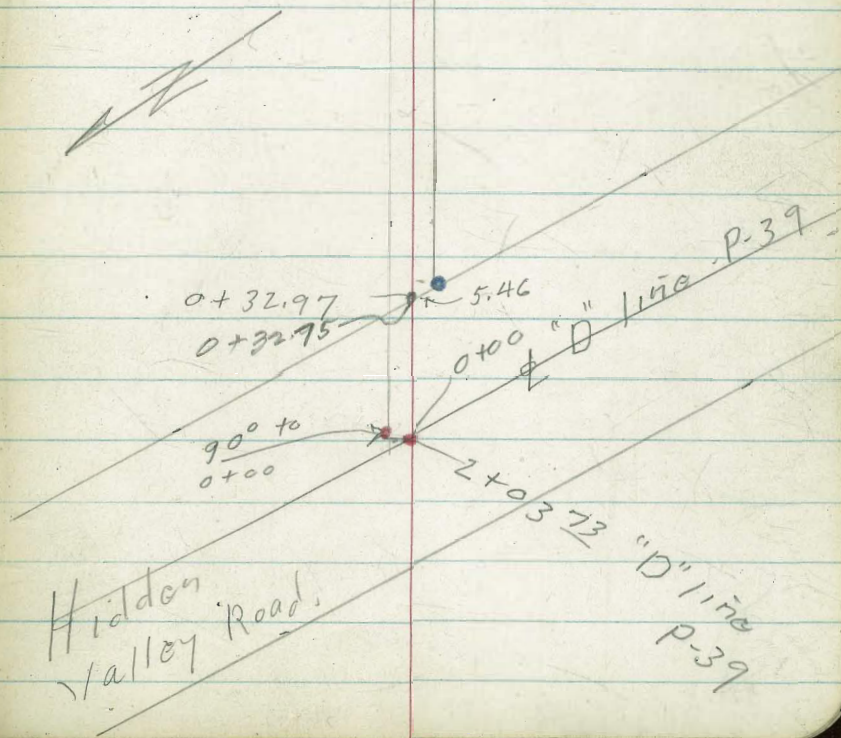 N
0+32.97
0+32.95
5.46
0+00
℄ "D" line P-39
90° to
0+00
2+03 73 "D" line
P-39
Hidden
Valley Road.